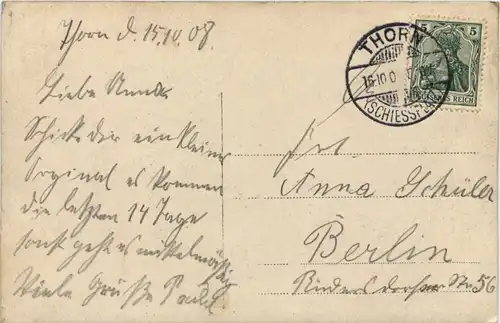 Thorn d. 15.10.08.
Liebe Anna
Schicke dir ein kleines
Orginal es kommen
die letzten 14 Tage
sonst geht es mittelmäßig
Viele Grüße Paul
THORN
(SCHIESSPL
5 5
DEUTSCHES REICH
Frl.
Anna Schüler
Berlin
Str. 56